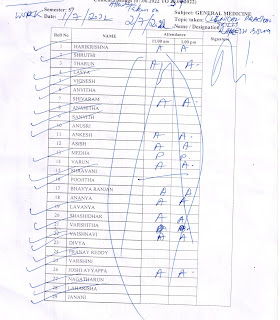 Semester: 9
Date: 1/7/2022 2/7/22
Subject: GENERAL MEDICINE
Topic taken: CLINICAL
Name / Designation
Roll No NAME Attendance Signature
1 HARIKRISHNA A A
2 SHRUTHI
3 THARUN A A
4 LASYA
5 VIGNESH
6 ANVITHA
7 SHIVARAM A A
8 ANAMITHA
9 SANATH
10 ANUSRI
11 ANKESH A A
12 ASISH A A
13 MEDHA P P
14 VARUN A A
15 SHRAVANI
16 POOJITHA
17 BHAVYA RANJAN
18 ANANYA A A
19 LAVANYA
20 SHASHIDHAR A A
21 VARSHITHA
22 VAISHNAVI A A
23 DIVYA
24 PRANAY REDDY
25 VARSHINI
26 JOSHI AYYAPPA A A
27 NAGATHARUN
28 LAHARISHA
29 JANANI